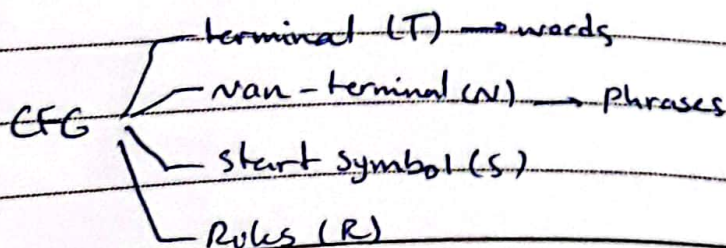 terminal (T) → words
Non-terminal (N) → Phrases
CFG
start symbol (S)
Rules (R)